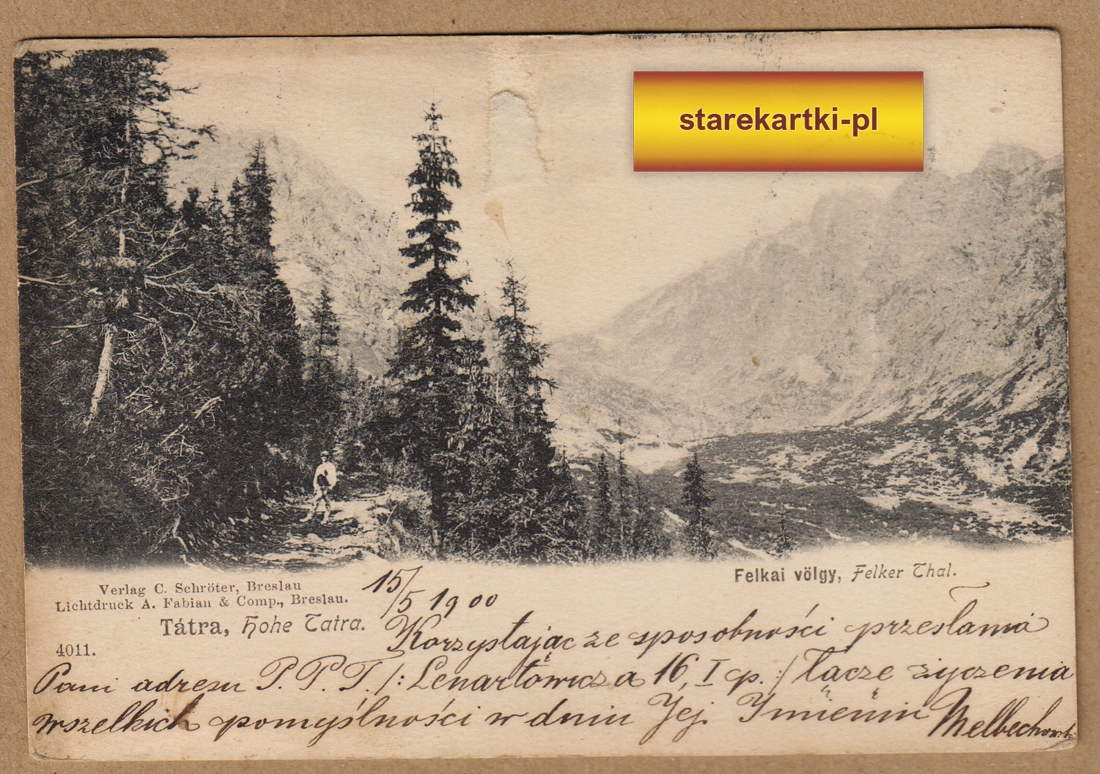 starekartki-pl
Verlag C. Schröter, Breslau
Lichtdruck A. Fabian & Comp., Breslau.
Tátra, Hohe Tatra.
4011.
Felkai völgy, Felker Thal.
15/5 1900
Korzystając ze sposobności przesłania
Pani adresu P. P. T. /: Lenartowicza 16, I p. :/ łączę życzenia
wszelkich pomyślności w dniu Jej Imienin